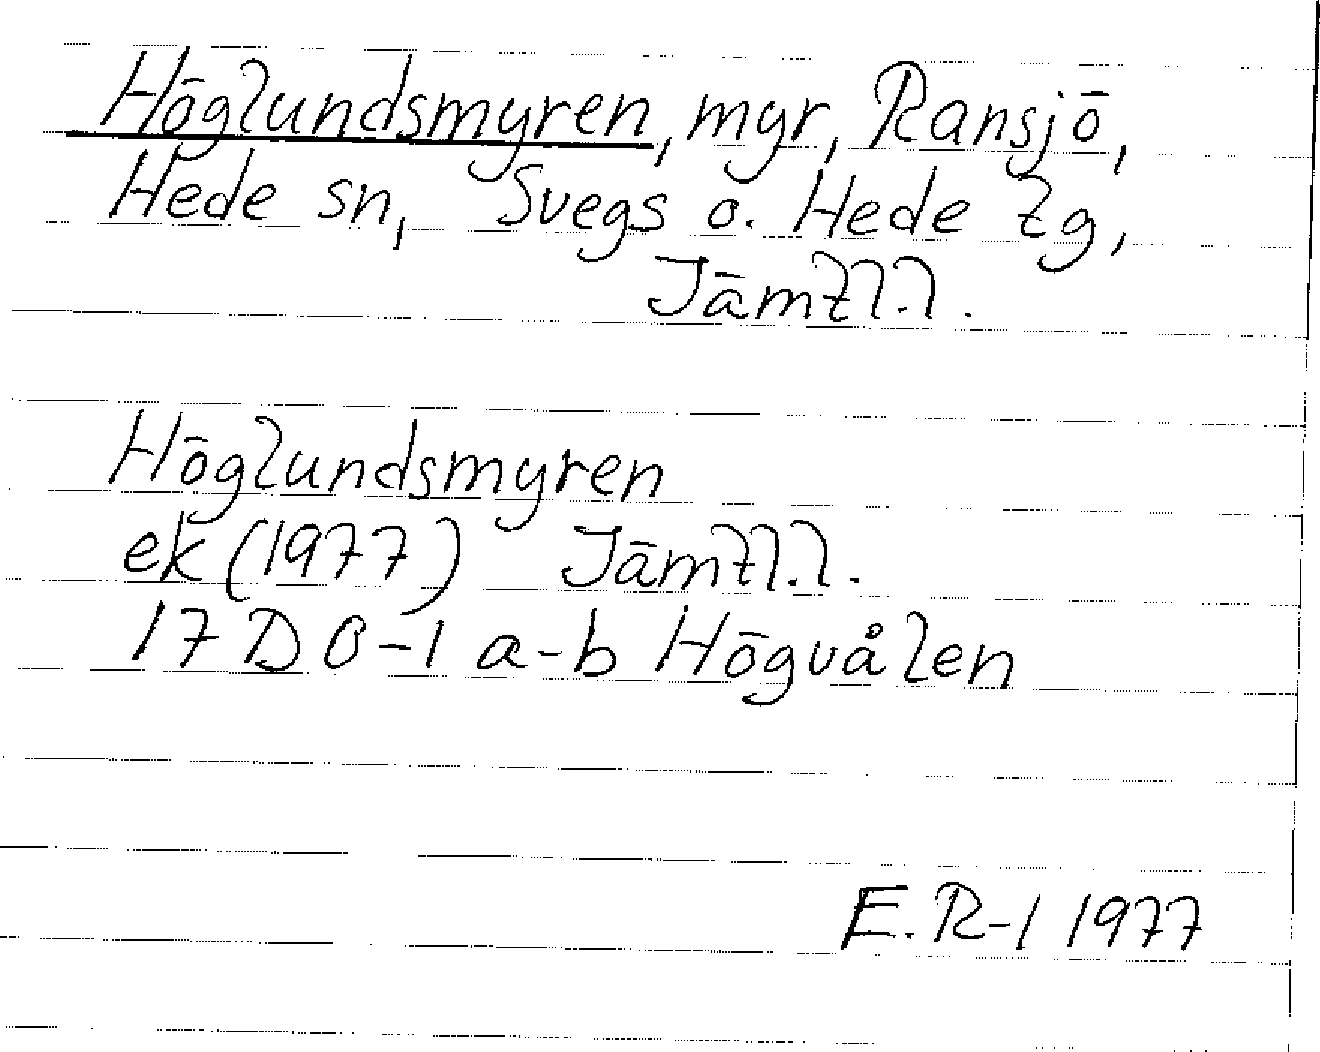 Höglundsmyren, myr, Ransjö,
Hede sn, Svegs o. Hede tg,
Jämtl.l.
Höglundsmyren
ek (1977) Jämtl.l.
17 D 0-1 a-b Högvålen
E. R-l 1977